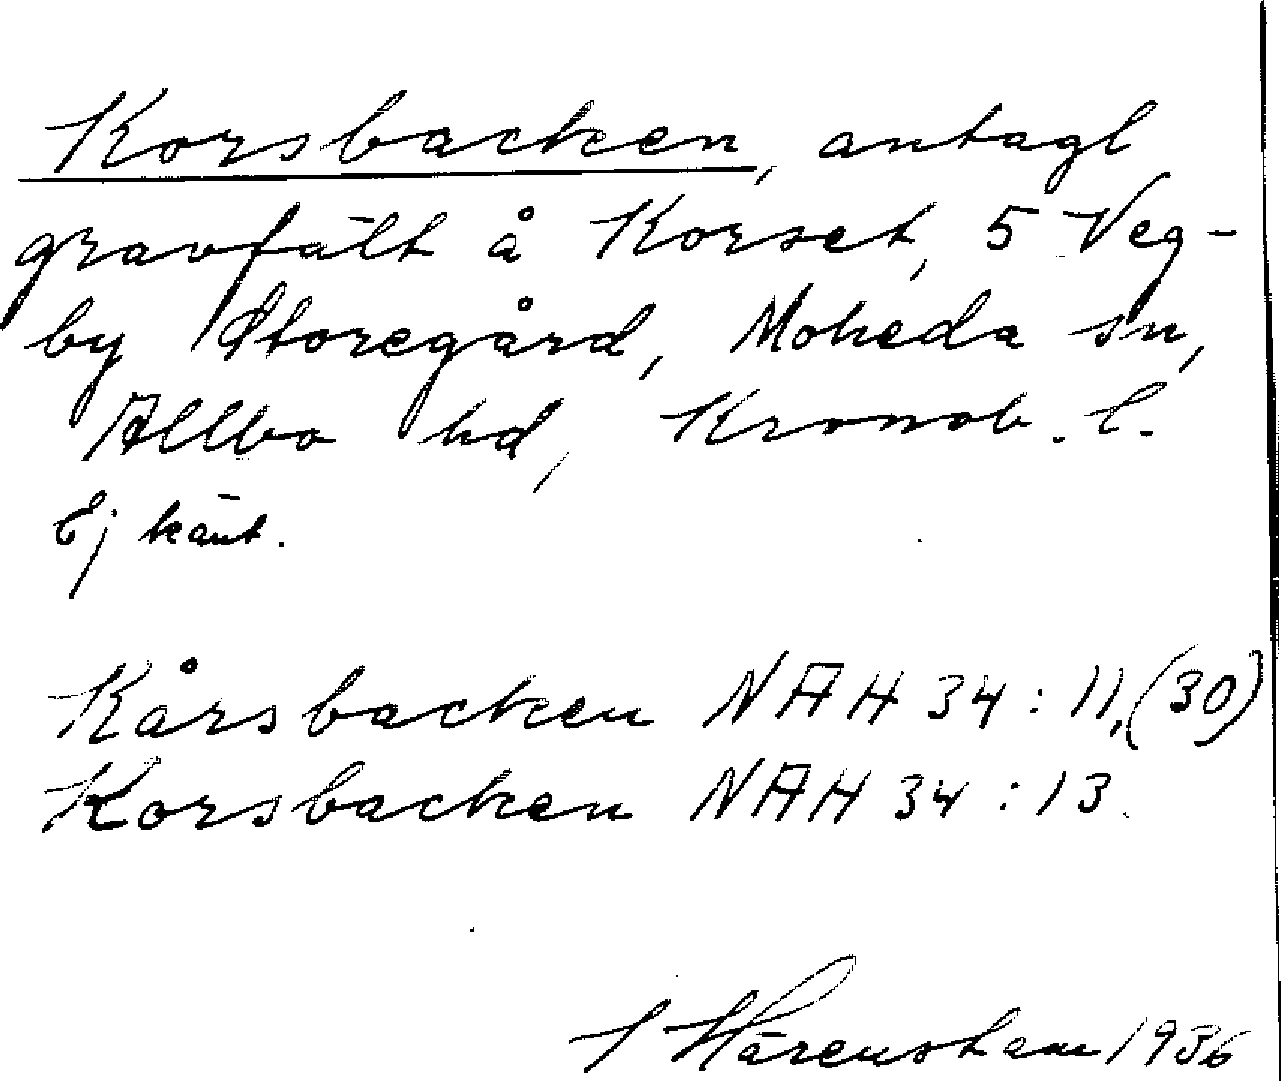 Korsbacken, antagl
gravfält å Korset, 5 Veg-
by Storegård, Moheda sn,
Allbo hd, Kronob. l.
Ej känt.
Kårsbacken NAH 34:11,(30)
Korsbacken NAH 34:13.
J Härenstam 1936